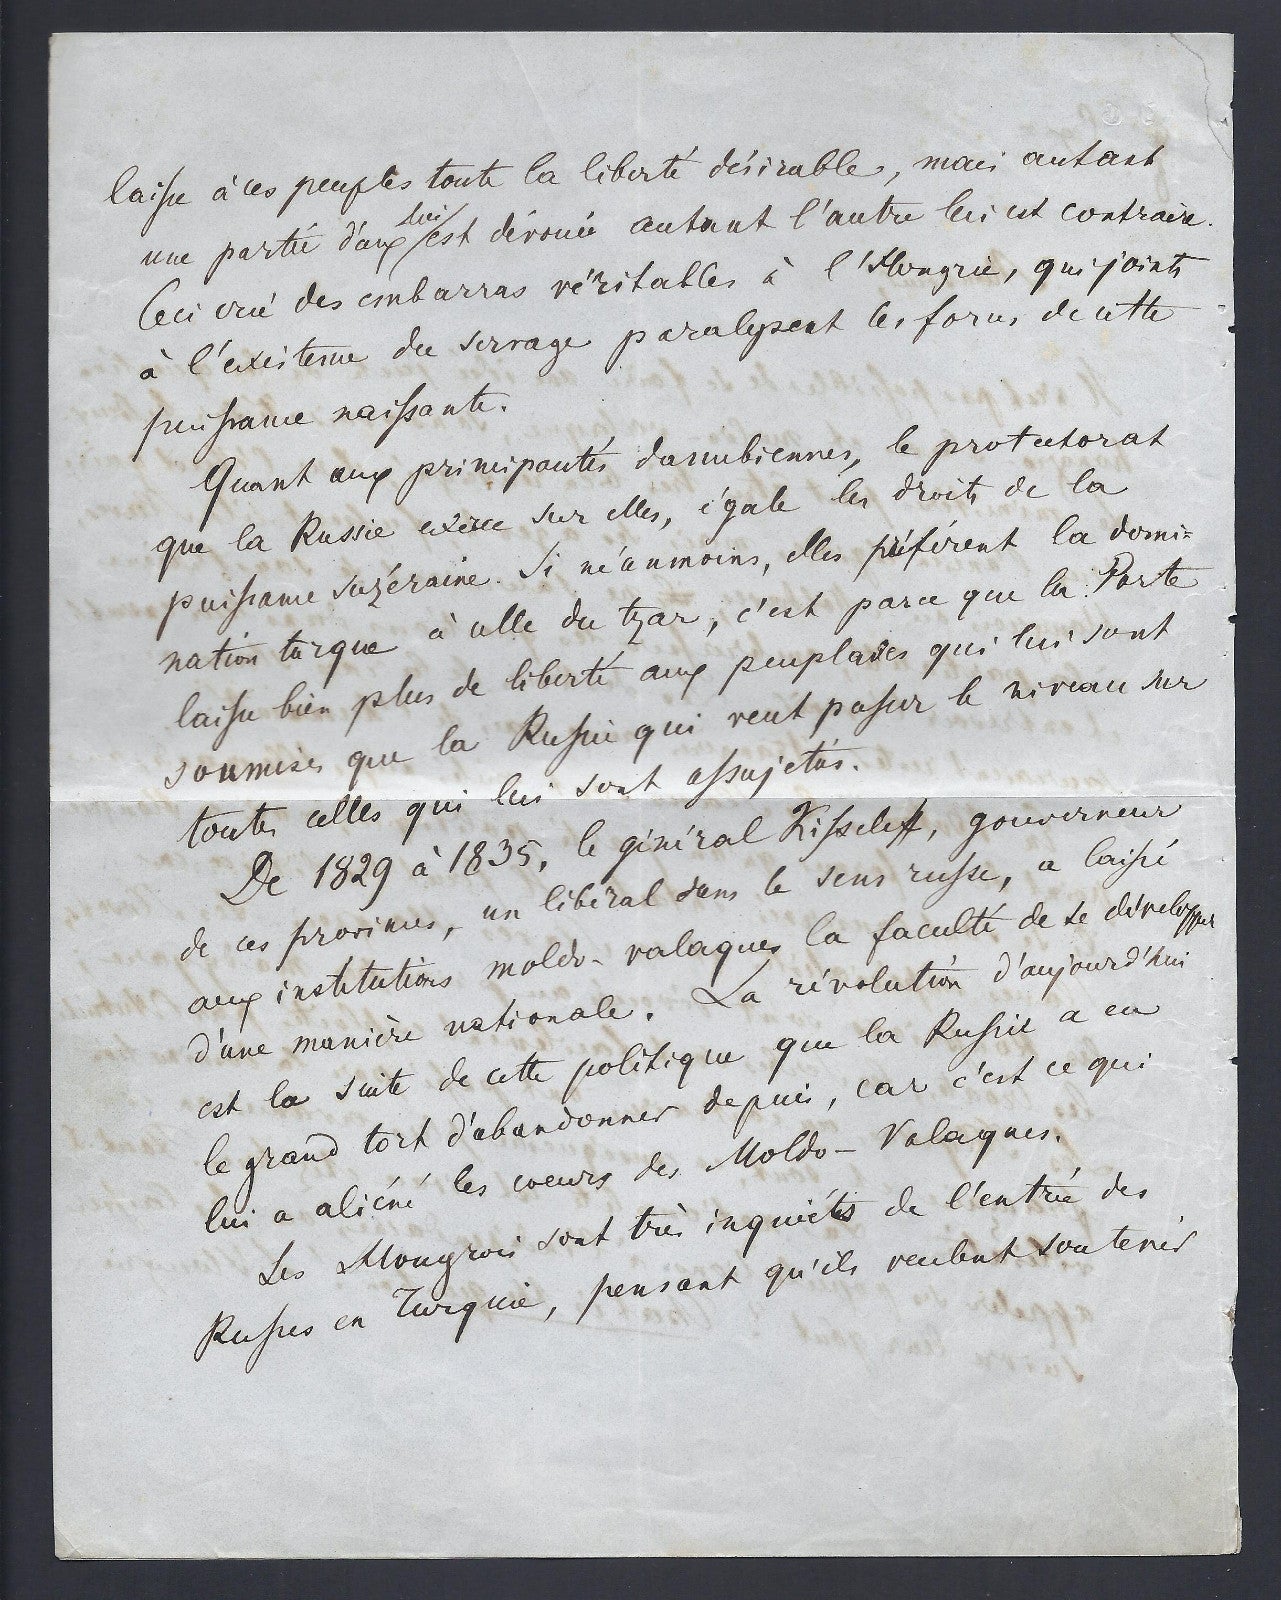 laisse à ces peuples toute la liberté désirable, mais autant
une partie d'eux lui est dévouée autant l'autre lui est contraire.
Ceci crée des embarras véritables à l'Hongrie, qui joints
à l'existence du servage paralysent les forces de cette
puissance naissante.
Quant aux principautés danubiennes, le protectorat
que la Russie exerce sur elles, égale les droits de la
puissance suzéraine. Si néanmoins, elles préférent la domi=
nation turque à celle du tzar, c'est parce que la Porte
laisse bien plus de liberté aux peuplades qui lui sont
soumises que la Russie qui veut passer le niveau sur
toutes celles qui lui sont assujeties.
De 1829 à 1835, le général Kisseleff, gouverneur
de ces provinces, un libéral dans le sens russe, a laissé
aux institutions moldo-valaques la faculté de se développer
d'une manière nationale. La révolution d'aujourd'hui
est la suite de cette politique que la Russie a eu
le grand tort d'abandonner depuis, car c'est ce qui
lui a aliéné les coeurs des Moldo-Valaques.
Les Hongrois sont très inquiétés de l'entrée des
Russes en Turquie, pensant qu'ils veulent soutenir